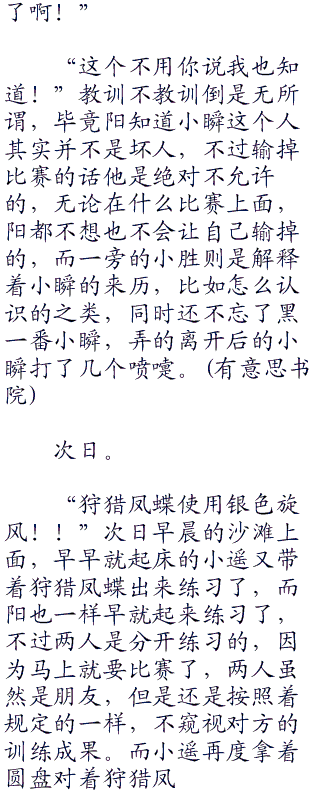 了啊！”
“这个不用你说我也知
道！”教训不教训倒是无所
谓，毕竟阳知道小瞬这个人
其实并不是坏人，不过输掉
比赛的话他是绝对不允许
的，无论在什么比赛上面，
阳都不想也不会让自己输掉
的，而一旁的小胜则是解释
着小瞬的来历，比如怎么认
识的之类，同时还不忘了黑
一番小瞬，弄的离开后的小
瞬打了几个喷嚏。(有意思书
院)
次日。
“狩猎凤蝶使用银色旋
风！！”次日早晨的沙滩上
面，早早就起床的小遥又带
着狩猎凤蝶出来练习了，而
阳也一样早就起来练习了，
不过两人是分开练习的，因
为马上就要比赛了，两人虽
然是朋友，但是还是按照着
规定的一样，不窥视对方的
训练成果。而小遥再度拿着
圆盘对着狩猎凤